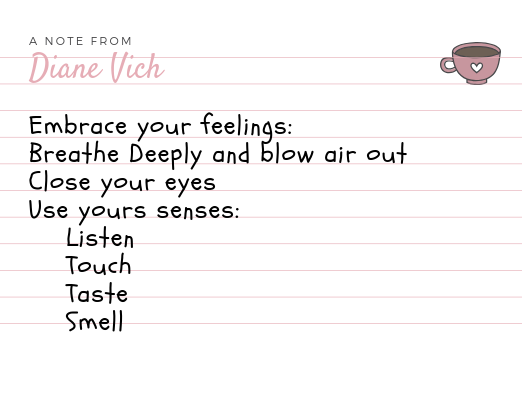 A NOTE FROM
Diane Vich
Embrace your feelings:
Breathe Deeply and blow air out
Close your eyes
Use yours senses:
Listen
Touch
Taste
Smell